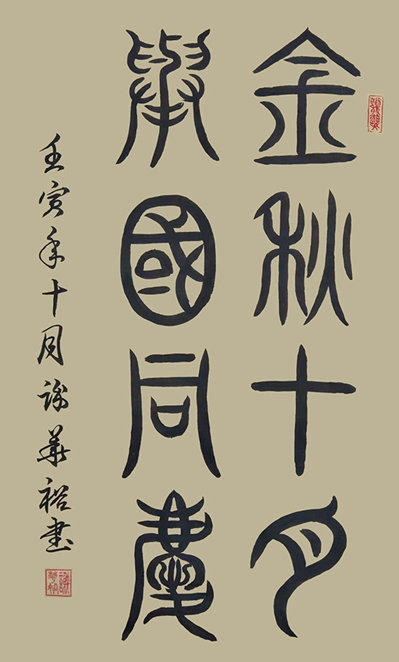 金秋十月
舉國同慶
壬寅年十月謝華裕書